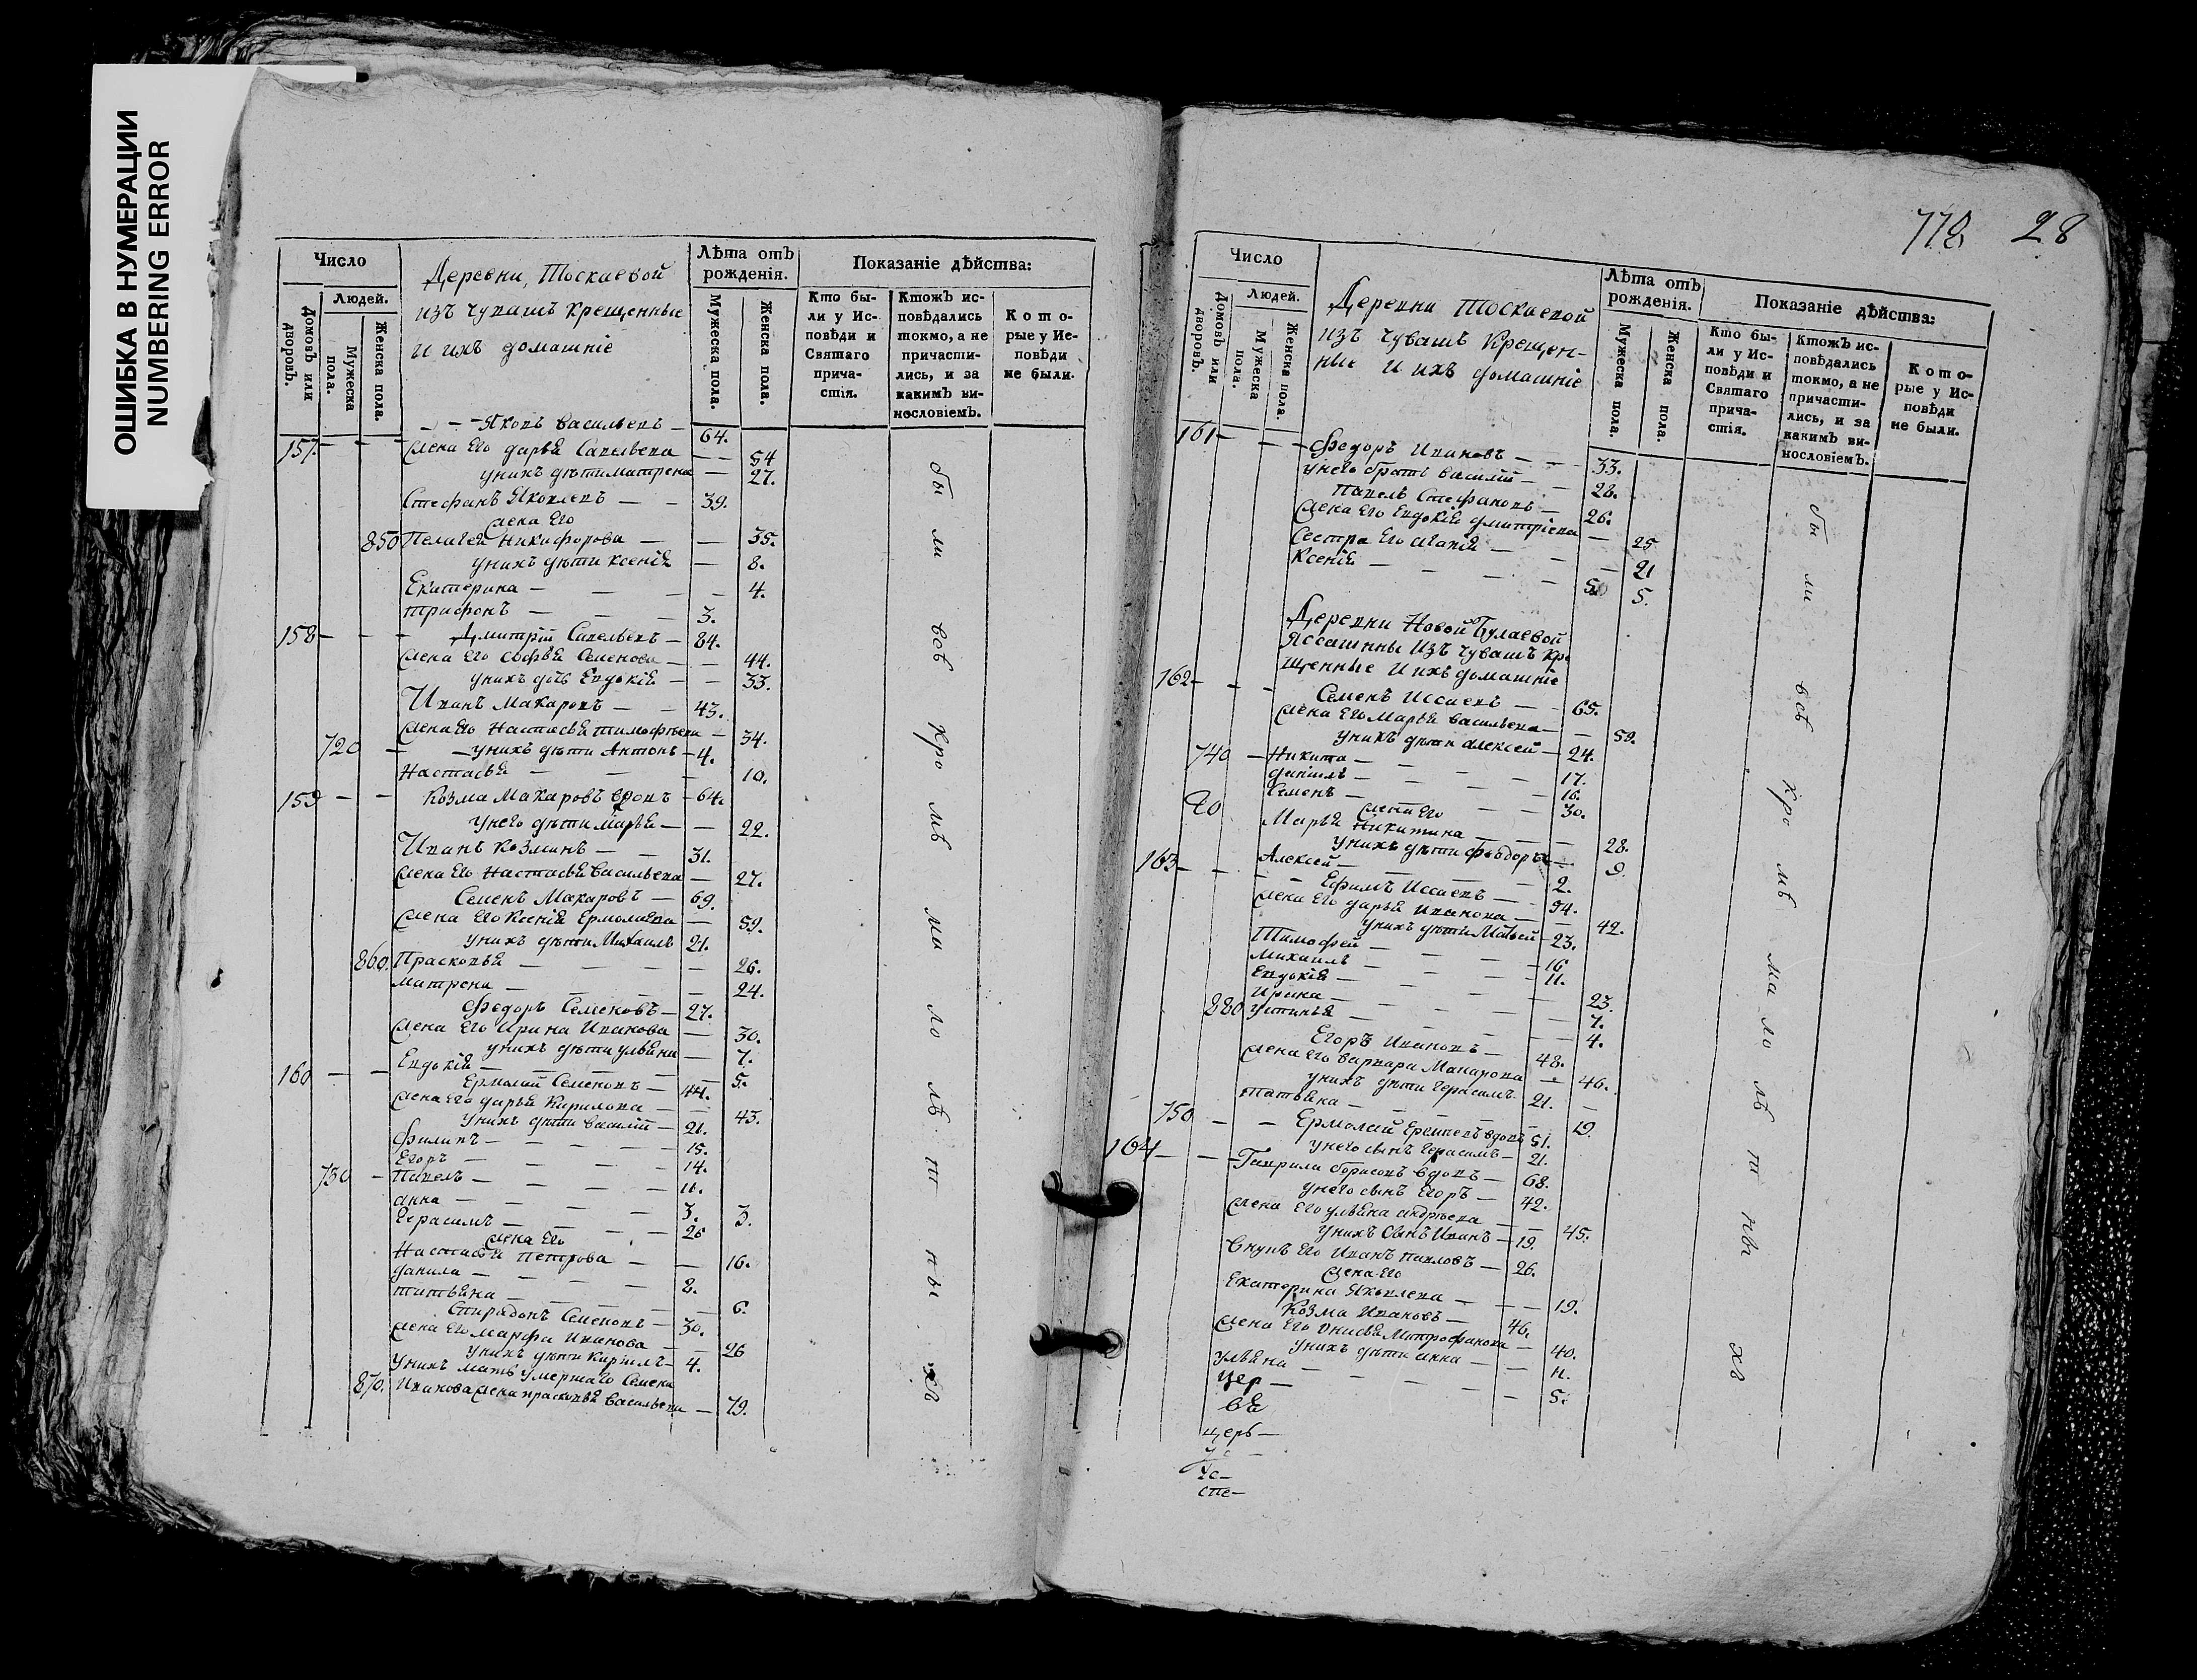 ОШИБКА В НУМЕРАЦИИ
NUMBERING ERROR
Число
Людей.
Домовъ или дворовъ.
Мужеска пола.
Женска пола.
Деревни, Тоскаевой
изъ чувашъ Крещенные
и ихъ домашніе
Лѣта отъ рожденія.
Мужеска пола.
Женска пола.
Показаніе дѣйства:
Кто бы-
ли у Ис-
повѣди и
Святаго
прича-
стія.
Ктожъ ис-
повѣдались
токмо, а не
причасти-
лись, и за
какимъ ви-
нословіемъ.
Кото-
рые у Ис-
повѣди
не были.
157. Яковъ Васильевъ 64.
жена Его дарья Савельева 54
унихъ дѣти матрена 27.
Стефанъ Яковлевъ 39.
жена Его
850 Пелагея Никифорова 35.
унихъ дѣти ксенія 8.
Екатерина 4.
трифонъ 3.
158 Дмитрій Савельевъ 84.
жена Его софья Семенова 44.
унихъ дочь Евдокія 33.
Иванъ Макаровъ 43.
жена Его Настасья тимофѣева 34.
720 унихъ дѣти Антонъ 4.
Настасья 10.
159 Козма Макаровъ вдовъ 64.
Унего дѣти марья 22.
Иванъ Козминъ 31.
жена Его Настасья Васильева 27.
Семенъ Макаровъ 69.
жена Его Ксенія Ермолаева 59.
унихъ дѣти Михаилъ 21.
860. Прасковья 26.
матрена 24.
Федоръ Семеновъ 27.
жена Его Ирина Иванова 30.
унихъ дѣти ульяна 7.
Евдокія 5.
160 Ермолай Семеновъ 44.
жена Его дарья Кирилова 43.
Унихъ дѣти Василій 21.
филипъ 15.
Егоръ 14.
730 Павелъ 11.
анна 3. 3.
Герасимъ 26
жена Его
Настасья Петрова 16.
данила 8.
татьяна 6.
Спиридонъ Семеновъ 30.
жена Его марфа Иванова 26
Унихъ дѣти Кирилъ 4.
Унихъ мать умершаго Семена
870. Иванова жена прасковья Васильева 79.
бы ли всѣ кро мѣ ма ло лѣ т ны хъ
778 28
Число
Людей.
Домовъ или дворовъ.
Мужеска пола.
Женска пола.
Деревни Тоскаевой
изъ чувашъ Крещен-
ные и ихъ домашніе
Лѣта отъ рожденія.
Мужеска пола.
Женска пола.
Показаніе дѣйства:
Кто бы-
ли у Ис-
повѣди и
Святаго
прича-
стія.
Ктожъ ис-
повѣдались
токмо, а не
причасти-
лись, и за
какимъ ви-
нословіемъ.
Кото-
рые у Ис-
повѣди
не были.
161 Федоръ Ивановъ 33.
унего братъ василій 28.
Павелъ Стефановъ 26.
жена Его Евдокія дмитріева 25
Сестра Его агапія 21
Ксенія 5.
Деревни Новой Булаевой
Яссашныи Изъ чувашъ Кре
щенные и ихъ домашніе
162 Семенъ Иссаевъ 65.
жена Его марья васильева 59.
унихъ дѣти алексей 24.
740 Никита 17.
данилъ 16.
Семенъ 30.
жена Его
Марья Никитина 28.
унихъ дѣти феодоръ 9.
Алексей 2.
163 Ефимъ Иссаевъ 54.
жена Его дарья Иванова 42.
унихъ дѣти Матвей 23.
Тимофей 16
Михаилъ 11.
Евдокія 23.
Ирина 7.
880 Устинья 4.
Егоръ Ивановъ 48.
жена Его варвара Макарова 46.
унихъ дѣти Герасимъ 21.
татьяна 19.
750 Ермолай вдовъ 51.
унего сынъ Герасимъ 21.
164 Гаврила борисовъ вдовъ 68.
унего сынъ Егоръ 42.
жена Его ульяна андрѣева 45.
унихъ Сынъ Иванъ 19.
Внукъ Его Иванъ Павловъ 26.
жена Его
Екатерина Яковлева 19.
Козма Ивановъ 46.
жена Его Анисья Митрофанова 40.
Унихъ дѣти анна 11.
Ульяна 5.
цер
церь
бы ли всѣ кро мѣ ма ло лѣ т ны хъ